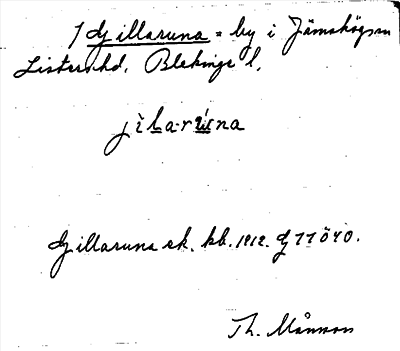 1 Gillaruna = by i Jämshög sn
Listers hd, Blekinge l.
jìlarúna
Gillaruna sk. kb. 1912. G 11 ö 40.
Th. Månsson